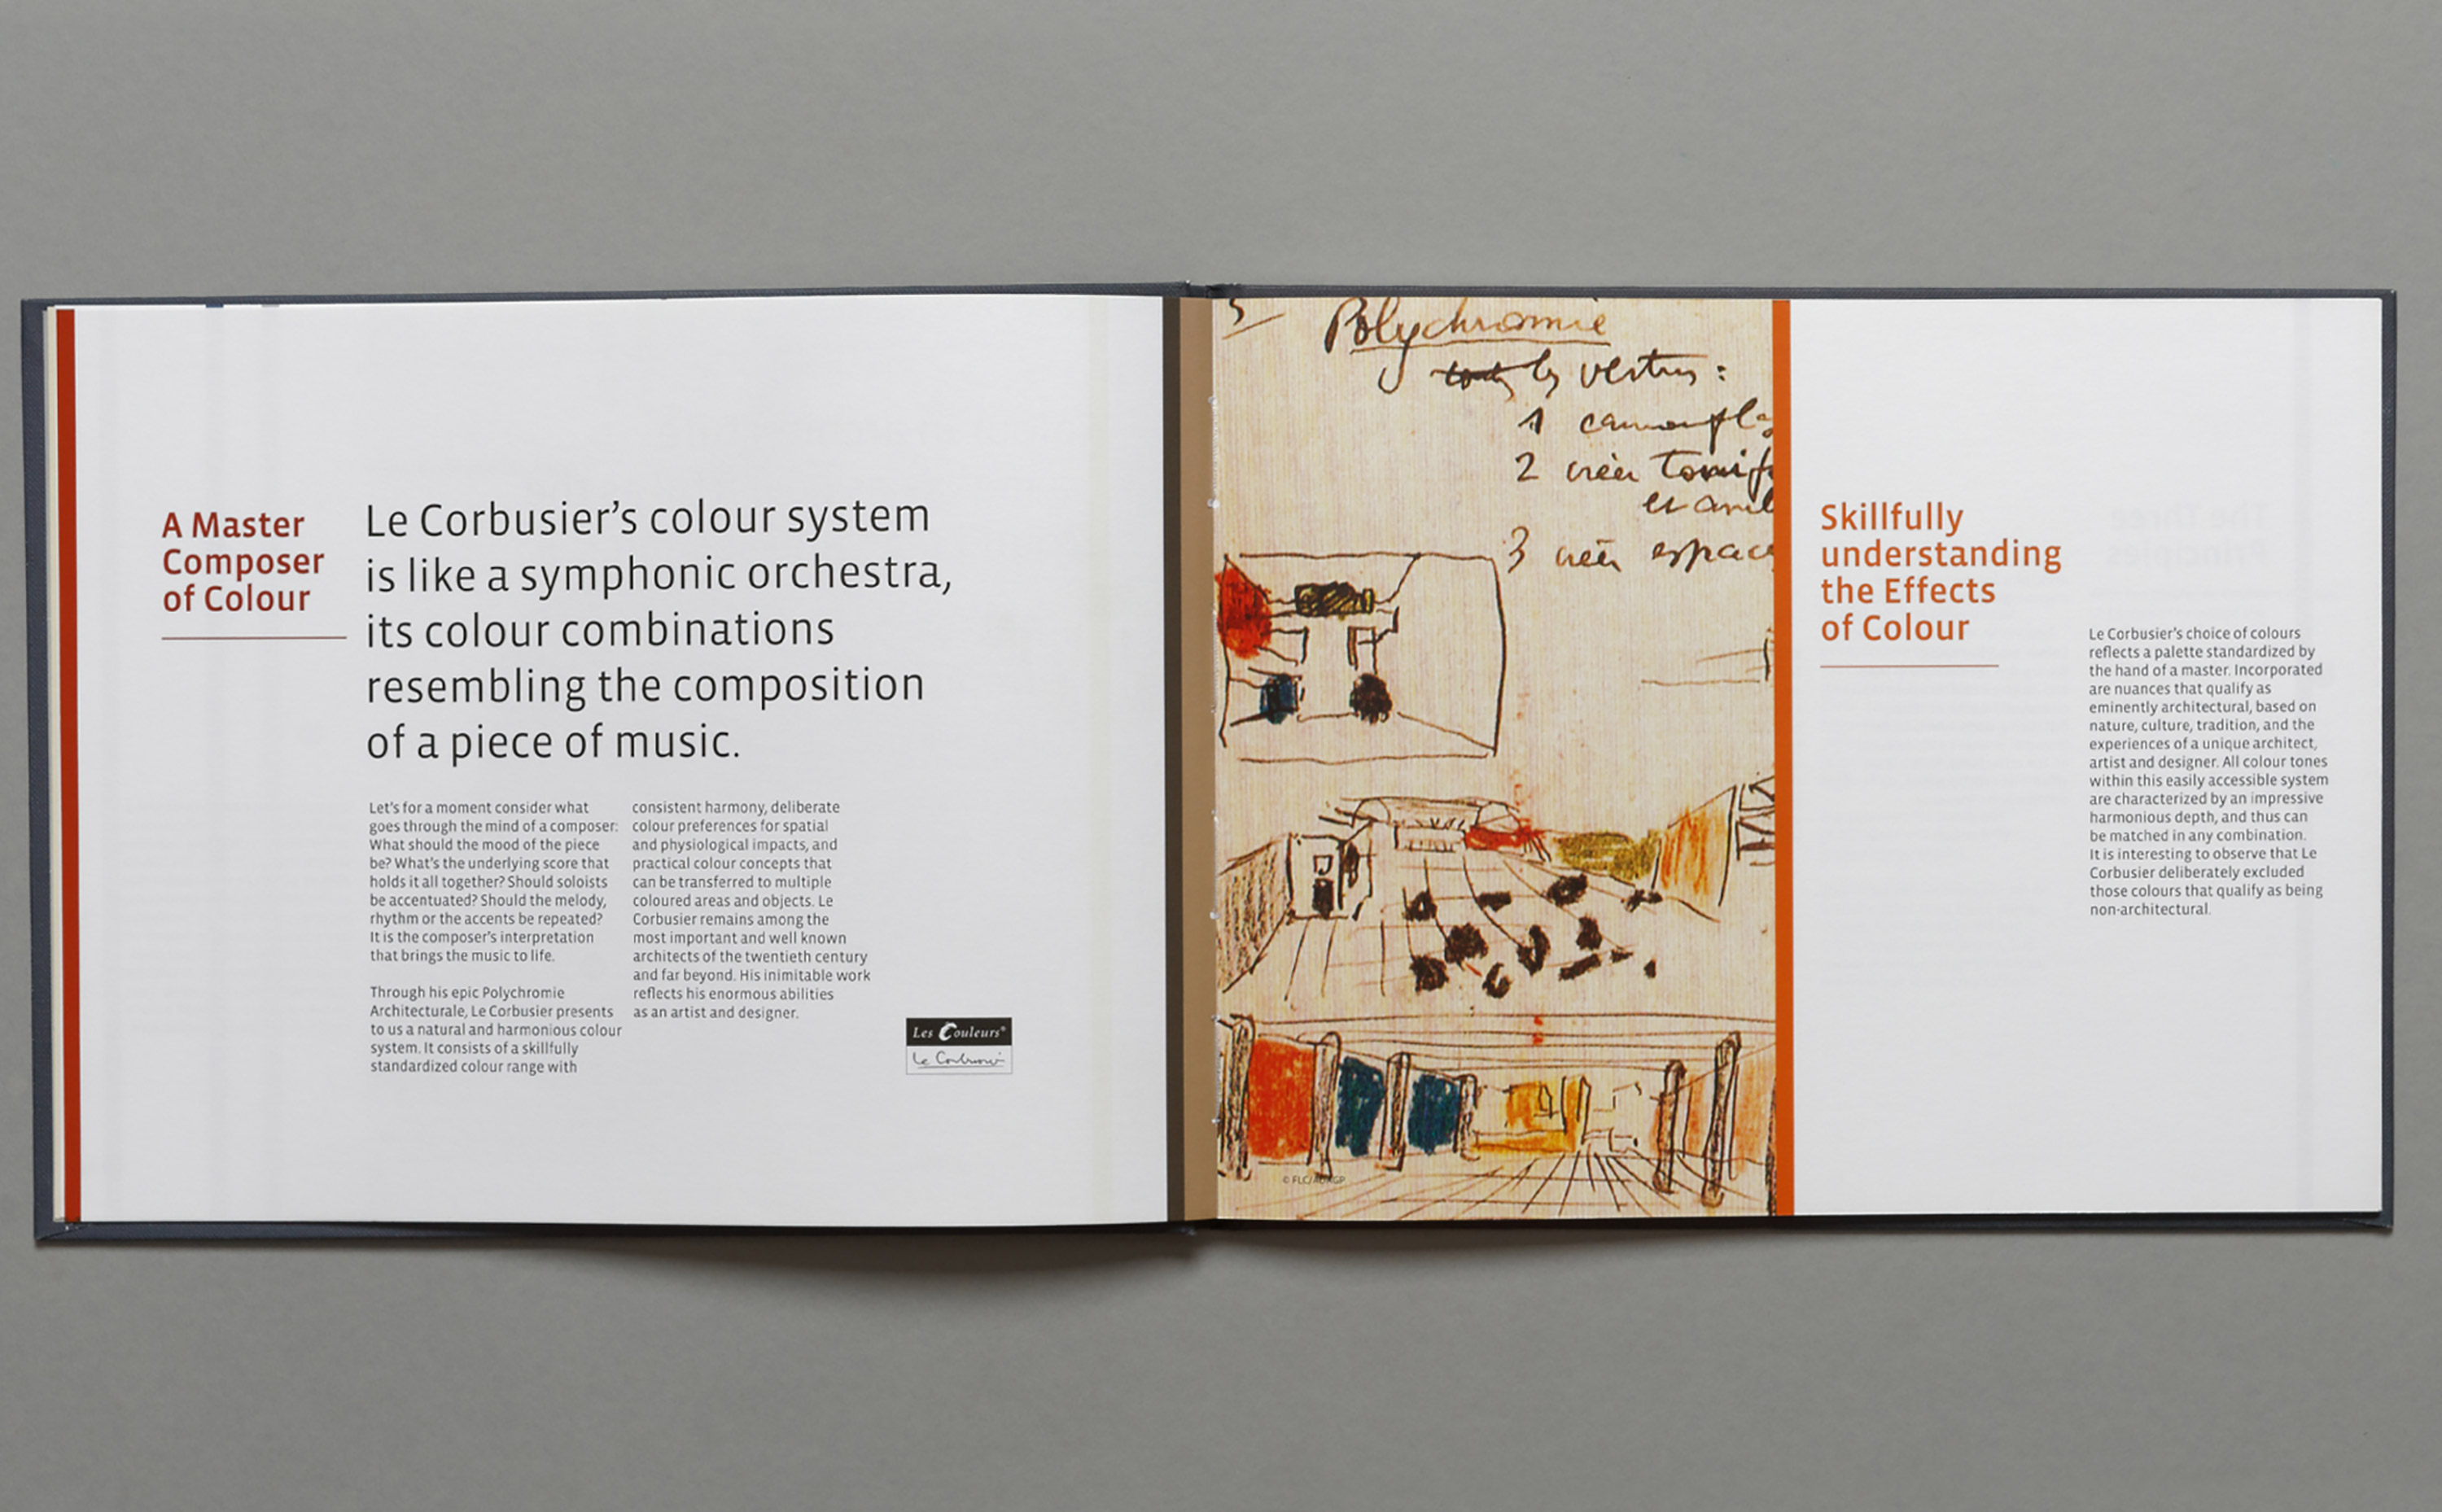 A Master
Composer
of Colour
Le Corbusier's colour system
is like a symphonic orchestra,
its colour combinations
resembling the composition
of a piece of music.
Let's for a moment consider what
goes through the mind of a composer:
What should the mood of the piece
be? What's the underlying score that
holds it all together? Should soloists
be accentuated? Should the melody,
rhythm or the accents be repeated?
It is the composer's interpretation
that brings the music to life.
Through his epic Polychromie
Architecturale, Le Corbusier presents
to us a natural and harmonious colour
system. It consists of a skillfully
standardized colour range with
consistent harmony, deliberate
colour preferences for spatial
and physiological impacts, and
practical colour concepts that
can be transferred to multiple
coloured areas and objects. Le
Corbusier remains among the
most important and well known
architects of the twentieth century
and far beyond. His inimitable work
reflects his enormous abilities
as an artist and designer.
Les Couleurs®
Le Corbusier
Polychromie
les vertus :
1 camoufla
2 créer
3 créer espace
© FLC/
Skillfully
understanding
the Effects
of Colour
Le Corbusier's choice of colours
reflects a palette standardized by
the hand of a master. Incorporated
are nuances that qualify as
eminently architectural, based on
nature, culture, tradition, and the
experiences of a unique architect,
artist and designer. All colour tones
within this easily accessible system
are characterized by an impressive
harmonious depth, and thus can
be matched in any combination.
It is interesting to observe that Le
Corbusier deliberately excluded
those colours that qualify as being
non-architectural.